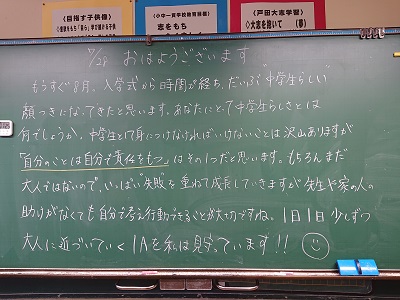 《目指す子供像》
《小中一貫学校教育目標》
志をもち
《戸田大志学習》
◇大志を抱いて (春)
7/28 おはようございます
もうすぐ8月、入学式から時間が経ち、だいぶ"中学生らしい"
顔つきになってきたと思います。あなたにとって中学生らしさとは
何でしょうか。中学生として身につけなければいけないことは沢山ありますが
「自分のことは自分で責任をもつ」はその1つだと思います。もちろんまだ
大人ではないので、いっぱい"失敗"を重ねて成長していきますが先生や家の人の
助けがなくても自分で考え行動できることが大切ですね。1日1日少しずつ
大人に近づいていく1Aを私は見守っています!!